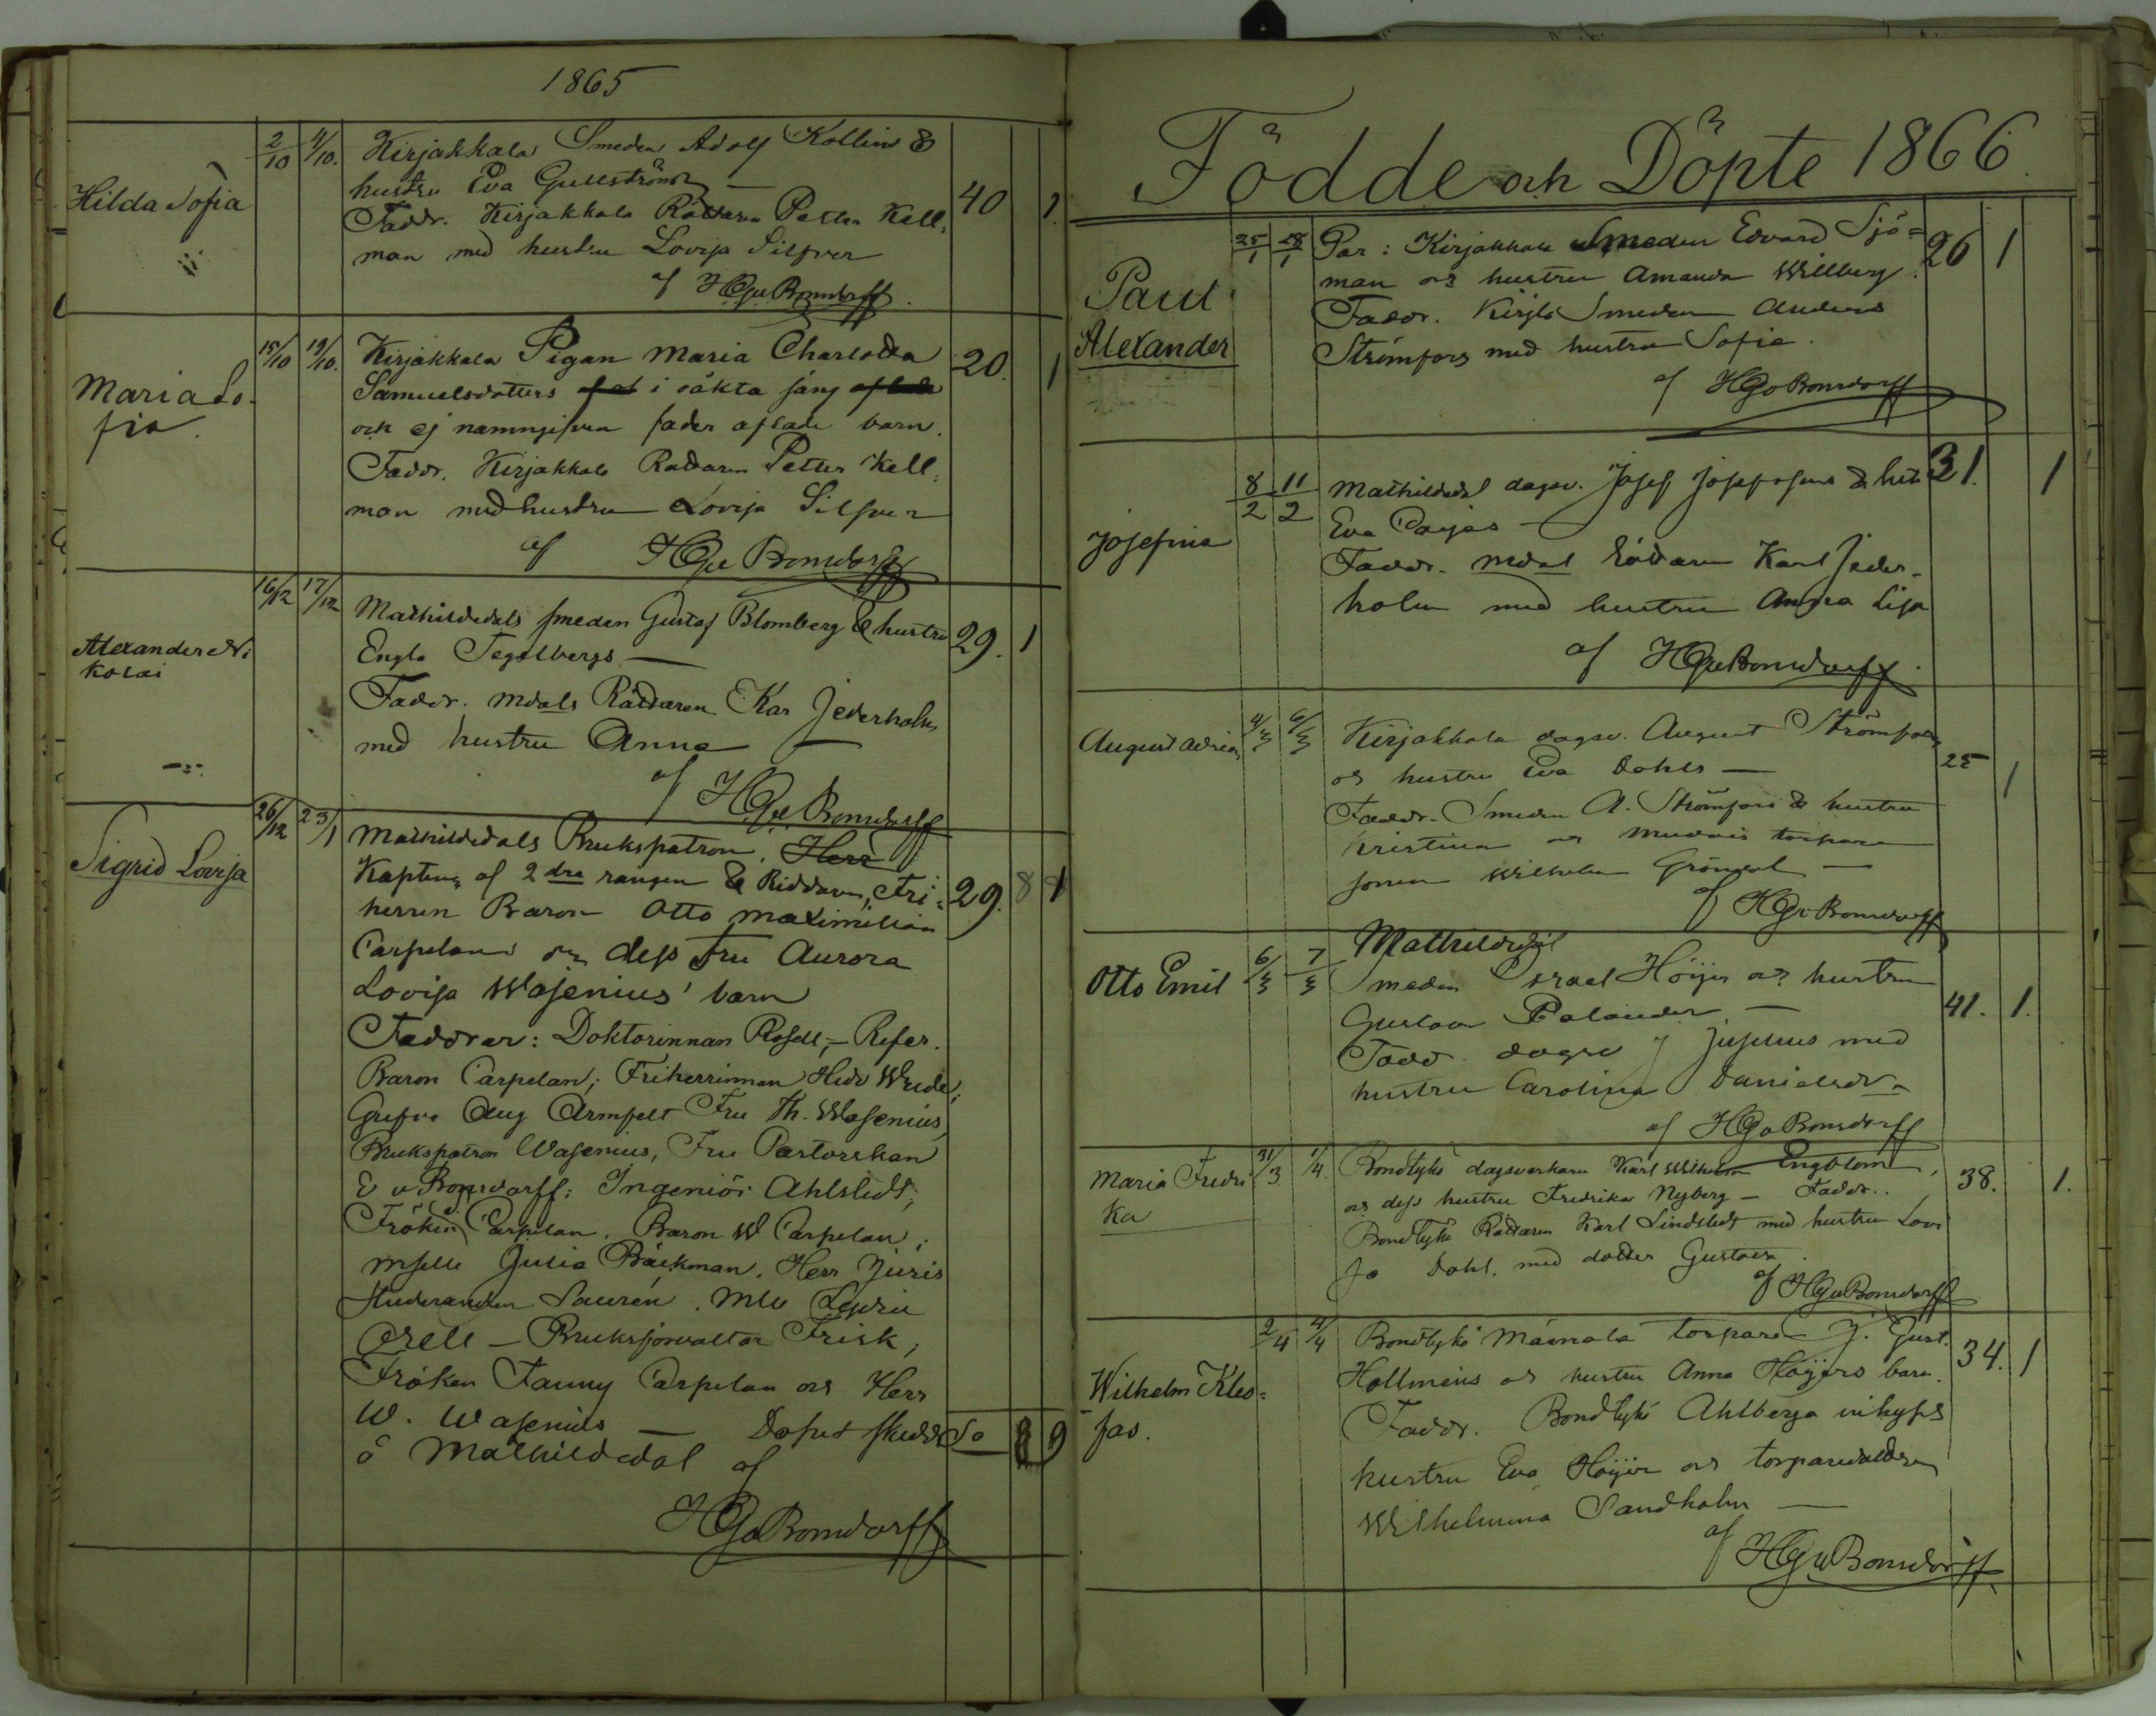 1865
Hilda Sofia
2/10 4/10. Kirjakkala Smeden Adolf Kollin &
hustru Eva Gullström
40 1.
Faddr. Kirjakkala Rättaren Petter Kell-
man med hustru Lovisa Silfver
af HG v Bonsdorff.
Maria So-
fia.
15/10 19/10. Kirjakkala Pigan Maria Charlotta
20. 1
Samuelsdotters i oäkta säng
och ej namngifven fader aflade barn.
Faddr. Kirjakkala Rättaren Petter Kell-
man med hustru Lovisa Silfver
af HG v Bonsdorff
Alexander Ni
kolai
16/12 17/12 Mathildedals smeden Gustaf Blomberg & hustru
29. 1
Engla Tegelbergs —
Faddr. Mdals Rättaren Kar Jederholm
med hustru Anna —
af HG v Bonsdorff
Sigrid Lovisa
26/12 23/1 Mathildedals Brukspatron, Herr
Kapten af 2dra rangen & Riddaren, Fri-
29. 8 1
herren Baron Otto Maximilian
Carpelans och dess Fru Aurora
Lovisa Wasenius' barn
Faddrar: Doktorinnan Rosell, — Refer.
Baron Carpelan; Friherrinnan Hedv Wrede;
Grefve Aug Armfelt Fru Th. Wasenius,
Brukspatron Wasenius, Fru Pastorskan
E v Bonsdorff; Ingeniör Ahlstedt;
Fröken Carpelan. Baron W Carpelan;
Mselle Julia Bäckman. Herr Juris
Studeranden Laurén. Mlle
Orell — Bruksförvaltar Frisk;
Fröken Fanny Carpelan och Herr
W. Wasenius — Dopet skedde
So 8 9
å Mathildedal af
HG v Bonsdorff
Födde och Döpte 1866.
Paul
Alexander
25/1 28/1 Par: Kirjakkala Smeden Edvard Sjö-
26 1
man och hustru Amanda Willberg.
Faddr. Kirjla Smeden Anders
Strömfors med hustru Sofia.
af HG v Bonsdorff
Josefina
8/2 11/2 Mathildedal dagsv. Josef Josefsson & hust
31. 1
Eva
Faddr. Mdal Rättaren Karl Jeder-
holm med hustru Anna Lisa
af HG v Bonsdorff.
August Adrian
4/3 6/3 Kirjakkala dagsv. August Strömfors
25 1
och hustru Eva Dahls —
Faddr. Smeden A. Strömfors & hustru
Kristina och torpare
sonen Wilhelm Grönqvist —
af HG v Bonsdorff
Otto Emil
6/3 7/3 Mathildedal
Smeden Israel Höijer och hustru
41. 1.
Gustava Palander —
Fadd. dagsv J Juselius med
hustru Carolina Danielsdr.
af HG v Bonsdorff
Maria Fredri
ka
31/3 1/4. Bondbyhs dagsverkaren Karl Wilhelm Engblom,
38. 1.
och dess hustru Fredrika Nyberg — Faddr..
Bondbyhs Rättaren Karl Lindstedt med hustru Lovi
sa Dahl. med dotter Gustava.
af HG v Bonsdorff
Wilhelm Kleo-
fas.
2/4 4/4 Bondbyhs Mäenala torpare J. Gust.
34. 1
Hollmens och hustru Anna Höijers barn.
Faddr. Bondbyhs Ahlberga inhyses
hustru Eva Höijer och torparedottren
Wilhelmina Sandholm —
af HG v Bonsdorff